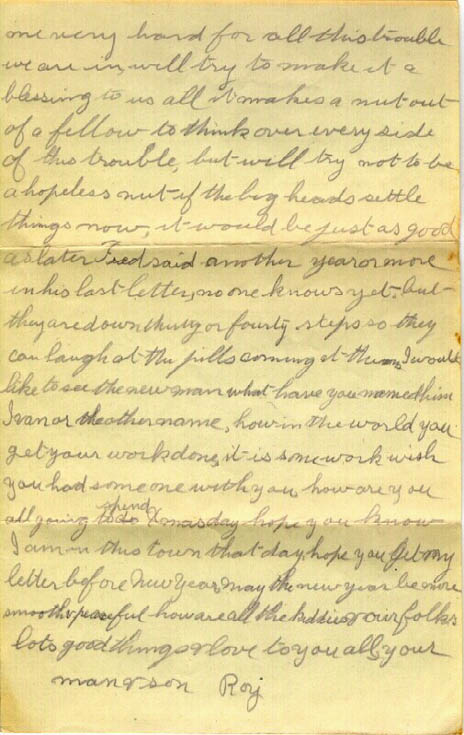 me very hard for all this trouble
we are in, will try to make it a
blessing to us all it makes a nut out
of a fellow to think over every side
of this trouble, but will try not to be
a hopeless nut if the big heads settle
things now, it would be just as good
as later Fred said another year or more
in his last letter, no one knows yet. but
they are down thirty or fourty steps so they
can laugh at the pills coming at them, I would
like to see the new man what have you named him
Ivan or the other name, how in the world you
get your work done, it is some work wish
you had someone with you, how are you
all going to spend Xmas day hope you know
I am in this town that day, hope you get my
letter before New Year, may the new year be more
smooth & peaceful how are all the kiddies & our folks
lots good things & love to you all, your
man & son Roy